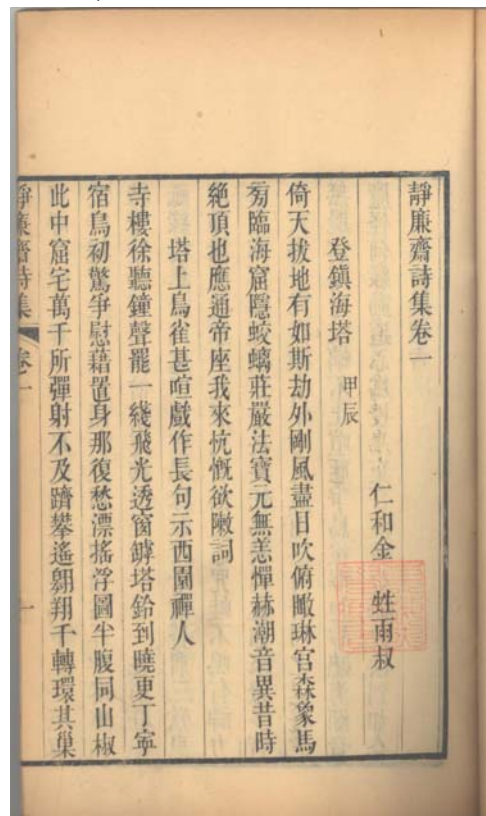 靜廉齋詩集卷一
仁和金 甡雨叔
登鎮海塔 甲辰
倚天拔地有如斯劫外剛風盡日吹俯瞰琳宮森象馬
旁臨海窟隱蛟螭莊嚴法寶元無恙憚赫潮音異昔時
絶頂也應通帝座我來忼慨欲陳詞
塔上鳥雀甚喧戲作長句示西園禪人
寺樓徐聽鐘聲罷一綫飛光透窗罅塔鈴到曉更丁寧
宿鳥初驚爭慰藉置身那復愁漂搖浮圖半腹同山椒
此中窟宅萬千所彈射不及躋攀遙翱翔千轉環其巢
靜廉齋詩集 卷一 一